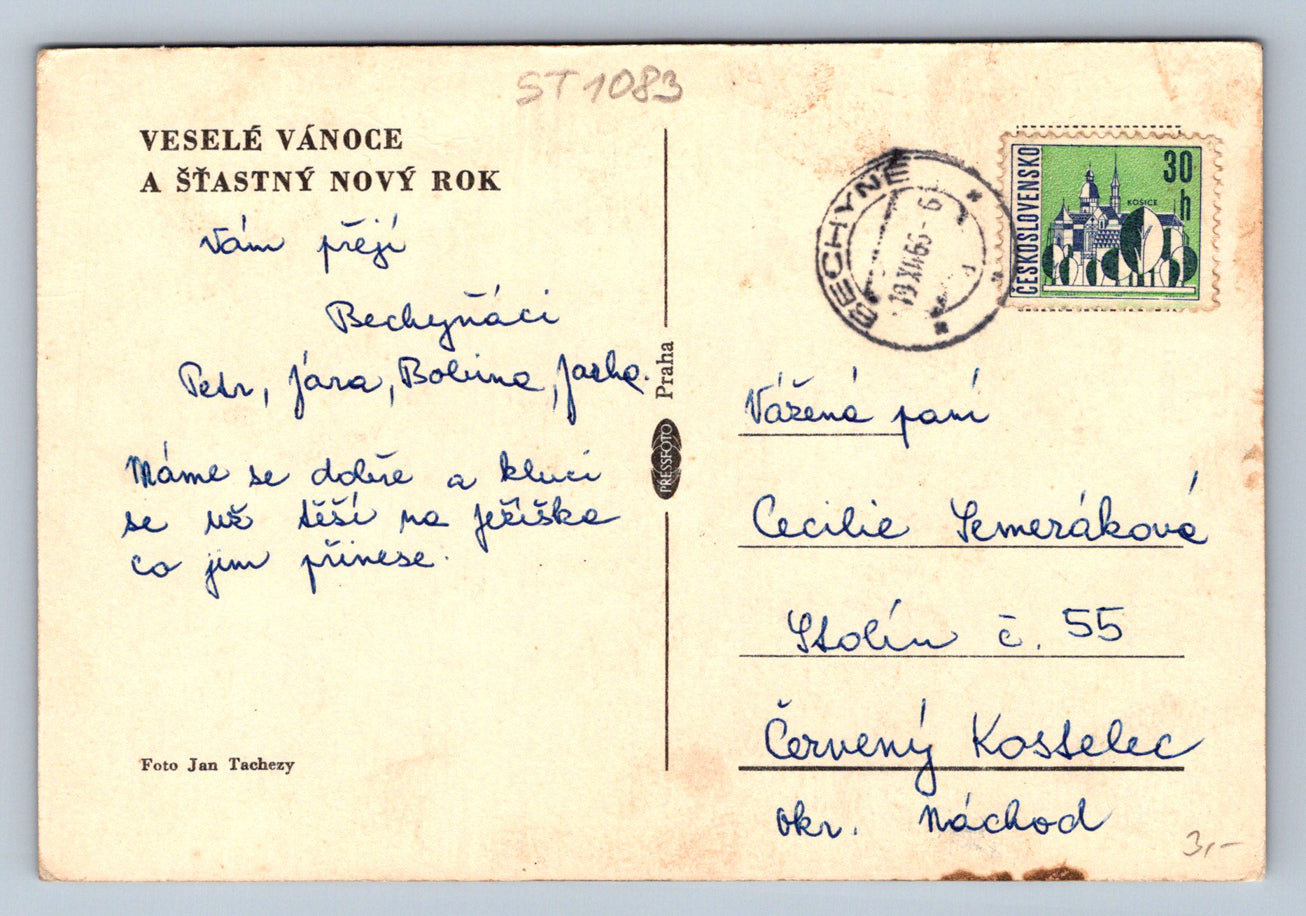 ST 1083
VESELÉ VÁNOCE
A ŠŤASTNÝ NOVÝ ROK
Vám přejí
Bechyňáci
Petr, Jára, Bobina,
Máme se dobře a kluci
se už těší na Ježíška
co jim přinese.
Foto Jan Tachezy
PRESSFOTO Praha
BECHYNĚ
19.XII.66-6
d
ČESKOSLOVENSKO
30
h
KOŠICE
Vážená paní
Cecilie Semeráková
Stolín č. 55
Červený Kostelec
okr. Náchod
3,-